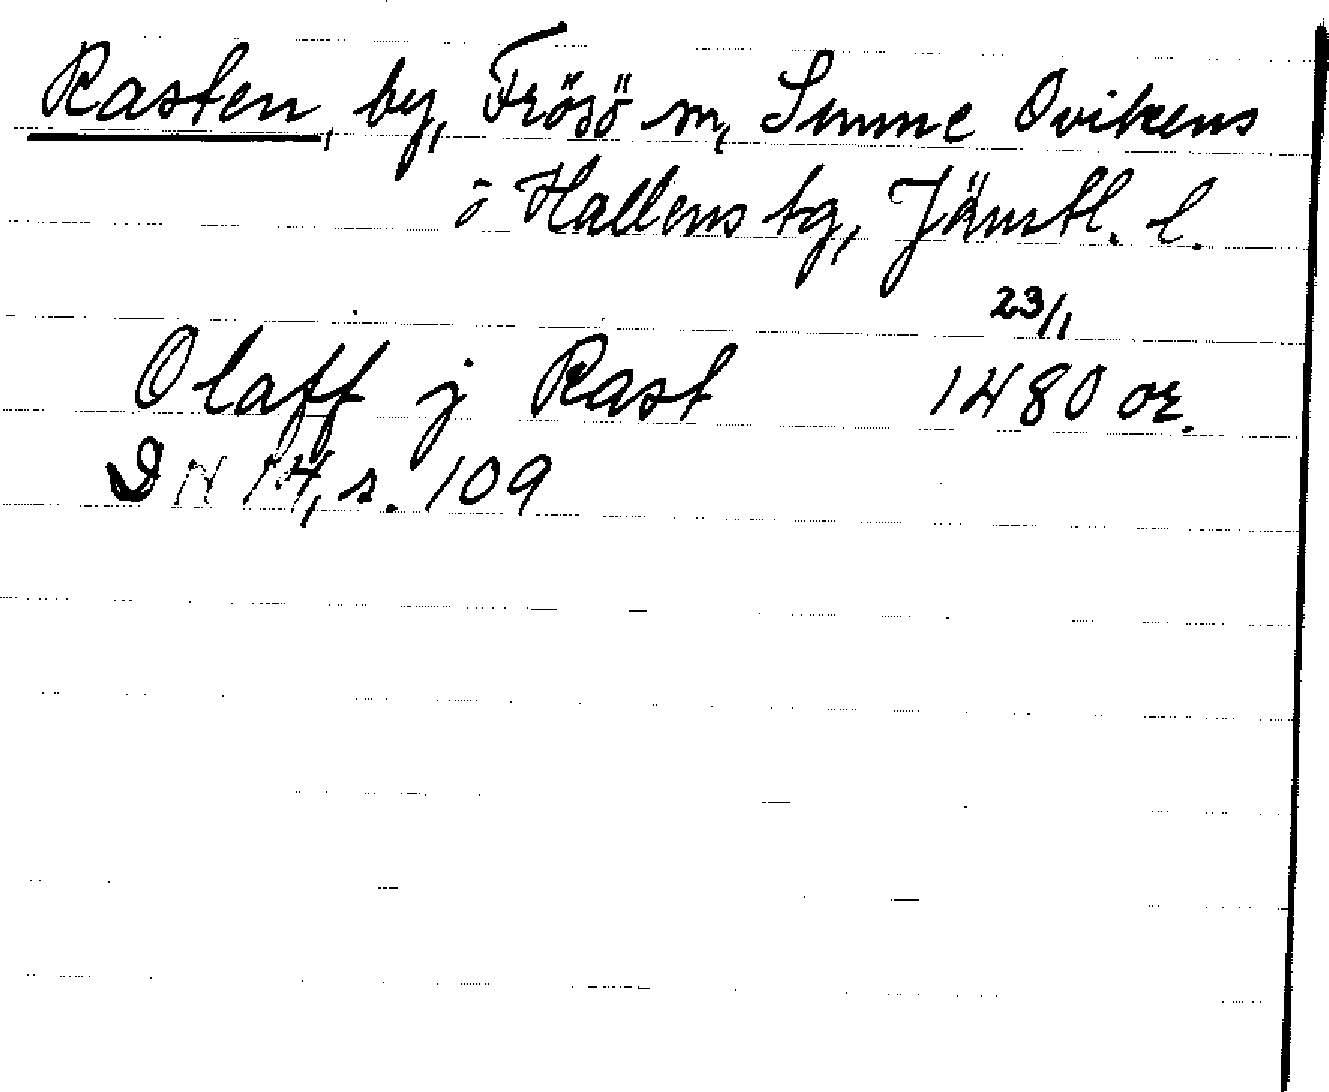 Rasten, by, Frösö sn, Sunne Ovikens
o Hallens tg, Jämtl. l.
23/1
Olaff j Rast 1480 or.
DN 14, s. 109